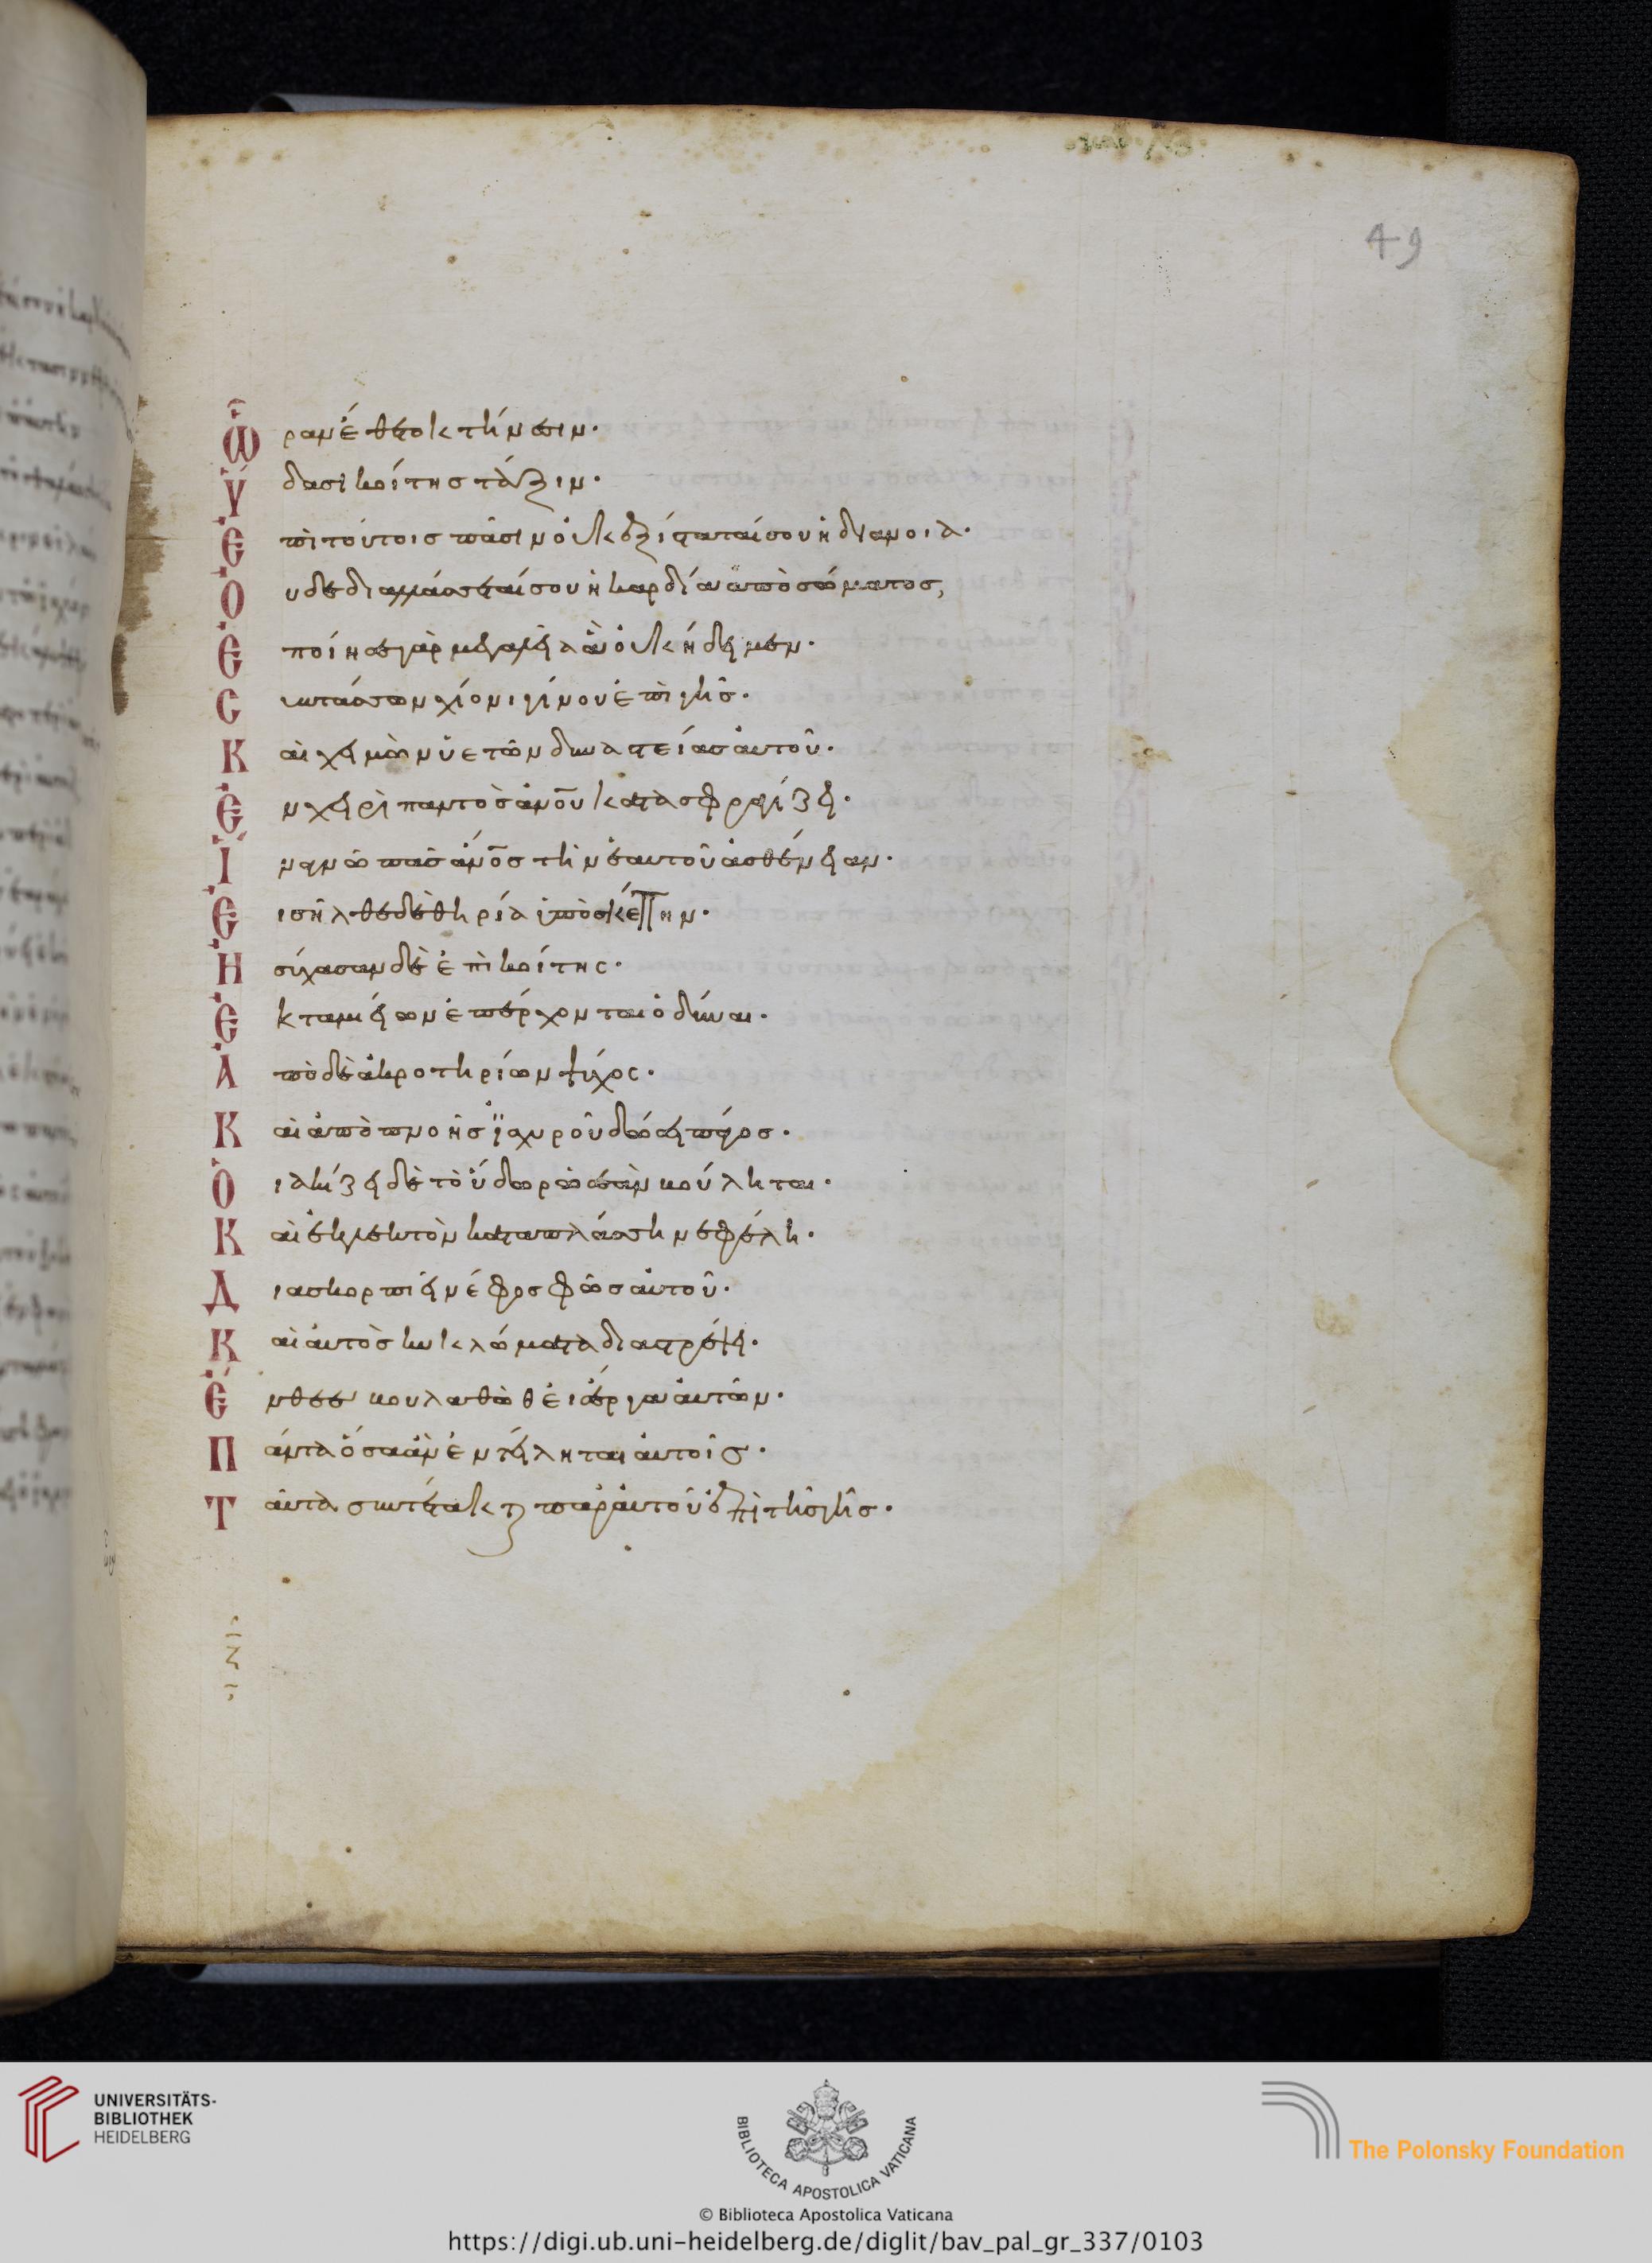 49
Ὥραν ἔθετο κτήνεσιν·
Υ̓́δασι κοίτης τάξιν·
Ἐπὶ τούτοις πᾶσιν οὐκ ἐξίσταταί σου ἡ διάνοια·
Οὐδὲ διαλλάσσεταί σου ἡ καρδία ἀπὸ σώματος,
Ἐποίησε γὰρ μεγαλεῖα ἃ οὐκ ἤδειμεν·
Συντάσσων χίονι γίνου ἐπὶ γῆς·
Καὶ χειμὼν ὑετῶν δυναστείας αὐτοῦ·
Ἐν χειρὶ παντὸς ἀνου κατασφραγίζει·
Ἵνα γνῶ πᾶς ἄνος τὴν ἑαυτοῦ ἀσθένειαν·
Εἰσῆλθε δὲ θηρία ὑπὸ σκέπην·
Ἡσύχασαν δὲ ἐπὶ κοίτης·
Ἐκ ταμιείων ἐπέρχονται ὀδύναι·
Ἀπὸ δὲ ἀκροτηρίων ψύχος·
Καὶ ἀπὸ πνοῆς ἰσχυροῦ δώσει πάγος·
Οἰακίζει δὲ τὸ ὕδωρ ὡς ἐὰν βούληται·
Καὶ ἐκλεκτὸν καταπλάσση νεφέλη·
Διασκορπιεῖ νέφος φῶς αὐτοῦ·
Καὶ αὐτὸς κυκλώματα διαστρέψει·
Ἐνθεεβουλαθὼθ εἰς ἔργα αὐτῶν·
Πάντα ὅσα ἂν ἐντείληται αὐτοῖς·
Ταῦτα συντέτακται παρ αὐτοῦ ἐπὶ τῆς γῆς·
UNIVERSITÄTS-
BIBLIOTHEK
HEIDELBERG
BIBLIOTECA APOSTOLICA VATICANA
The Polonsky Foundation
© Biblioteca Apostolica Vaticana
https://digi.ub.uni-heidelberg.de/diglit/bav_pal_gr_337/0103